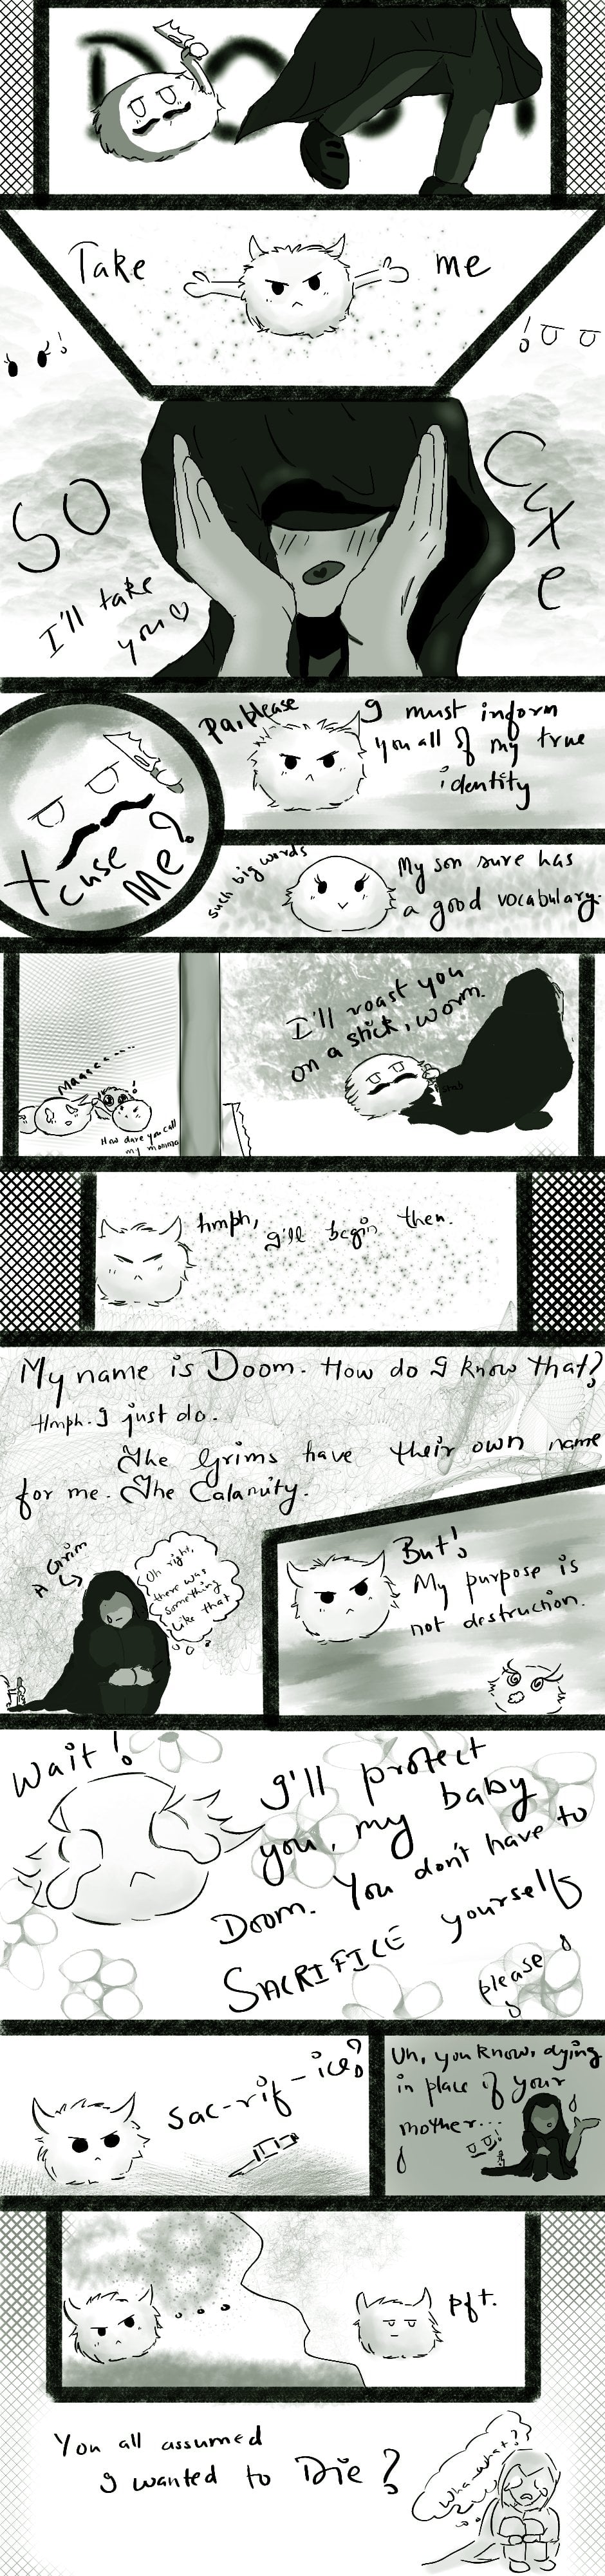 Take me
SO
CUTE
I'll take
you♡
Xcuse
Me?
Pa, please
I must inform
you all of my true
identity
such big words
My son sure has
a good vocabulary.
Maaaa.....
How dare you call
my momma
I'll roast you
on a stick, worm.
stab
Hmph, I'll begin then.
My name is Doom. How do I know that?
Hmph. I just do.
The Grims have their own name
for me. The Calamity.
A Grim
Oh right,
there was
something
like that
But!
My purpose is
not destruction.
Wait!
I'll protect
you, my baby
Doom. You don't have to
SACRIFICE yourself
please
sac-rif-ice?
Uh, you know, dying
in place of your
mother...
...
pft.
You all assumed
I wanted to Die?
Wha-what?